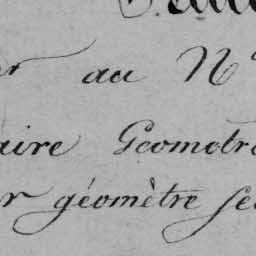 er au N°
aire Geometre
r géomètre se